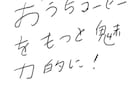 おうちコーヒー
をもっと魅
力的に！